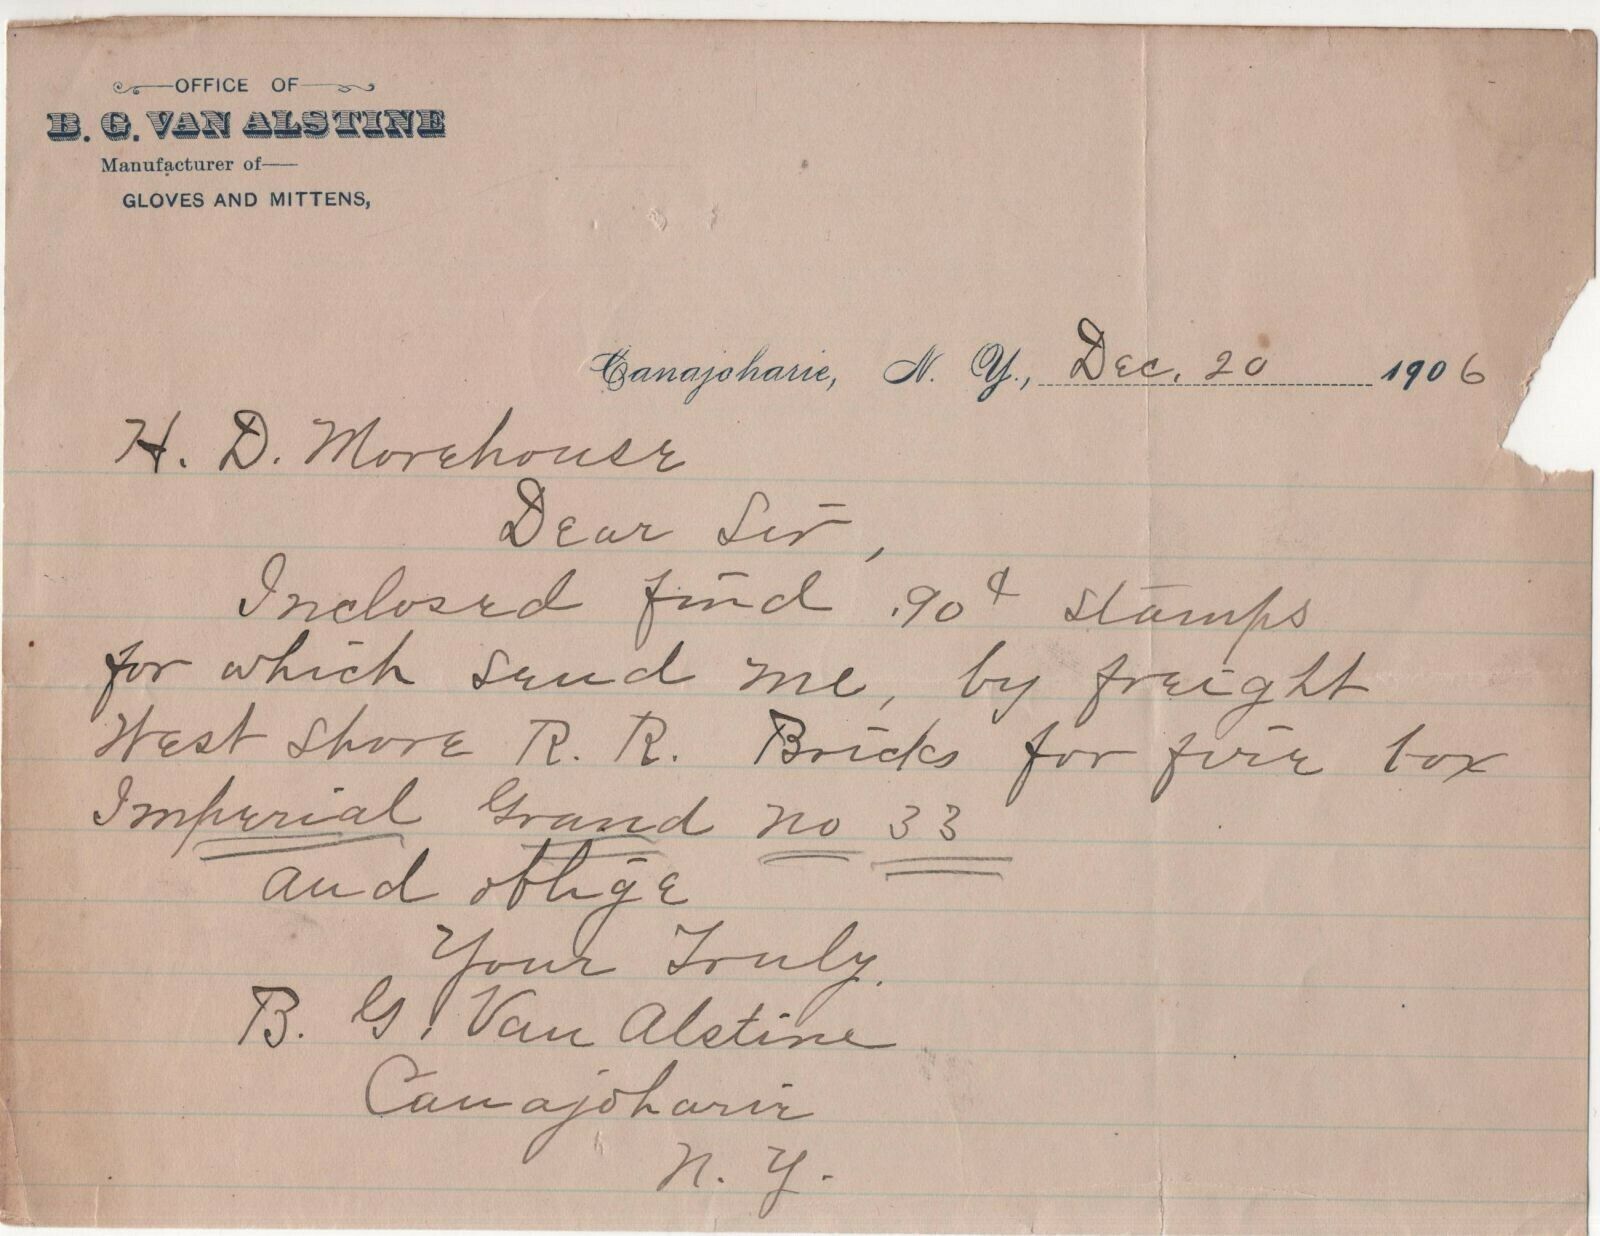 OFFICE OF
B. G. VAN ALSTINE
Manufacturer of
GLOVES AND MITTENS,
Canajoharie, N. Y., Dec. 20 1906
H. D. Morehouse
Dear Sir,
Inclosed find .90¢ stamps
for which send me, by freight
West Shore R. R. Bricks for fire box
Imperial Grand no 33
and oblige
Your Truly.
B. G. Van Alstine
Canajoharie
N. Y.